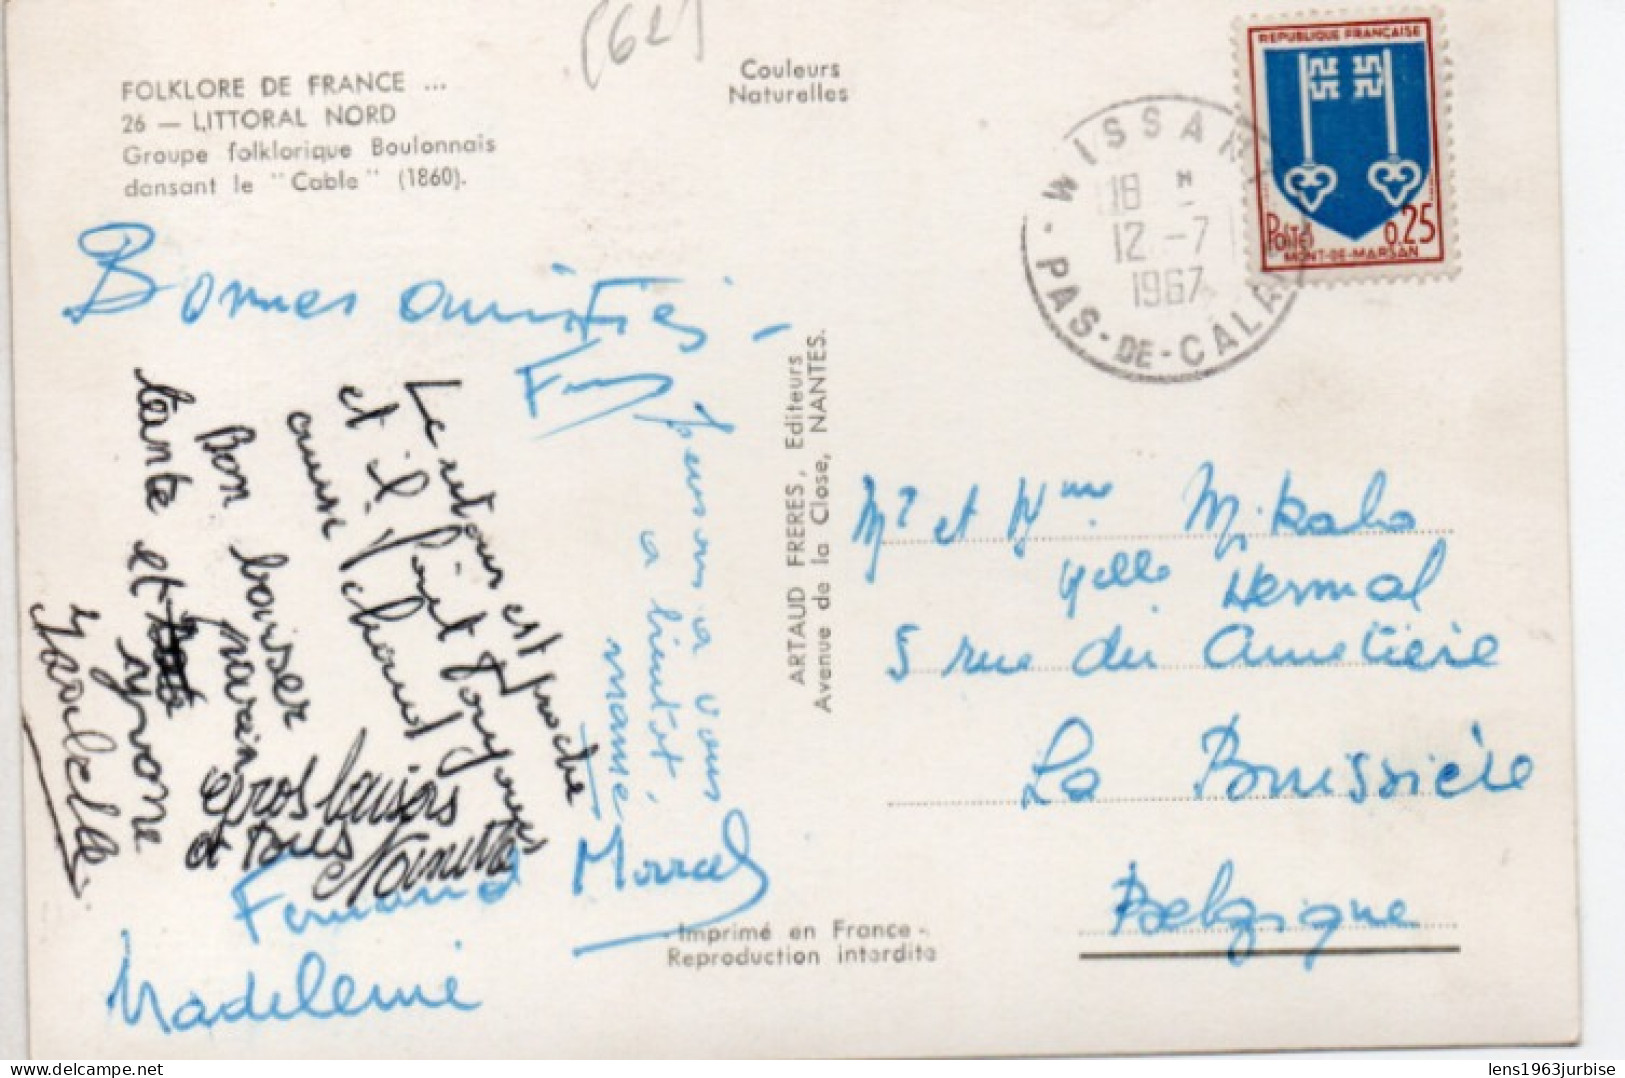 (62)
FOLKLORE DE FRANCE ...
26 — LITTORAL NORD
Groupe folklorique Boulonnais
dansant le "Cable" (1860).
Couleurs
Naturelles
REPUBLIQUE FRANÇAISE
Postes 0,25
MONT-DE-MARSAN
WISSANT
18 H
12 -7
1967
PAS-DE-CALAIS
Bonnes amitiés -
Le retour est proche
et il fait toujours
aussi chaud
Bon baiser
parrain
tante et
Isabelle
Gros baisers
à tous
Nanette
Pensons a vous
a bientôt,
mamie
Marcel
Fernand
Madeleine
ARTAUD FRERES, Editeurs
Avenue de la Close, NANTES.
Mr et Mme Mikaho
Melle Hermal
5 rue du Cimetière
La Bouissière
Belgique
Imprimé en France -
Reproduction interdite
delcampe.net
lens1963jurbise